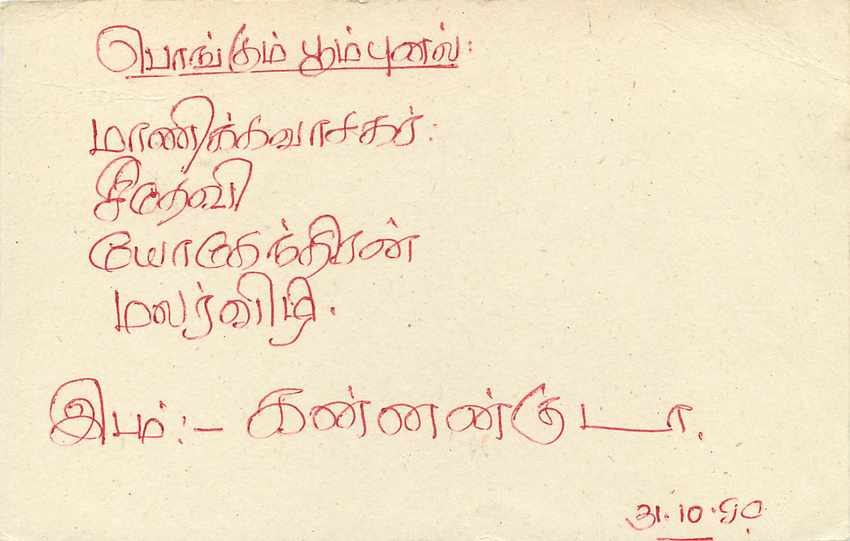 பொங்கும் பூம்புனல்:
மாணிக்கவாசகர்.
சீதேவி
யோகேந்திரன்
மலர்விழி.
இடம்:- கன்னன்குடா.
31.10.90